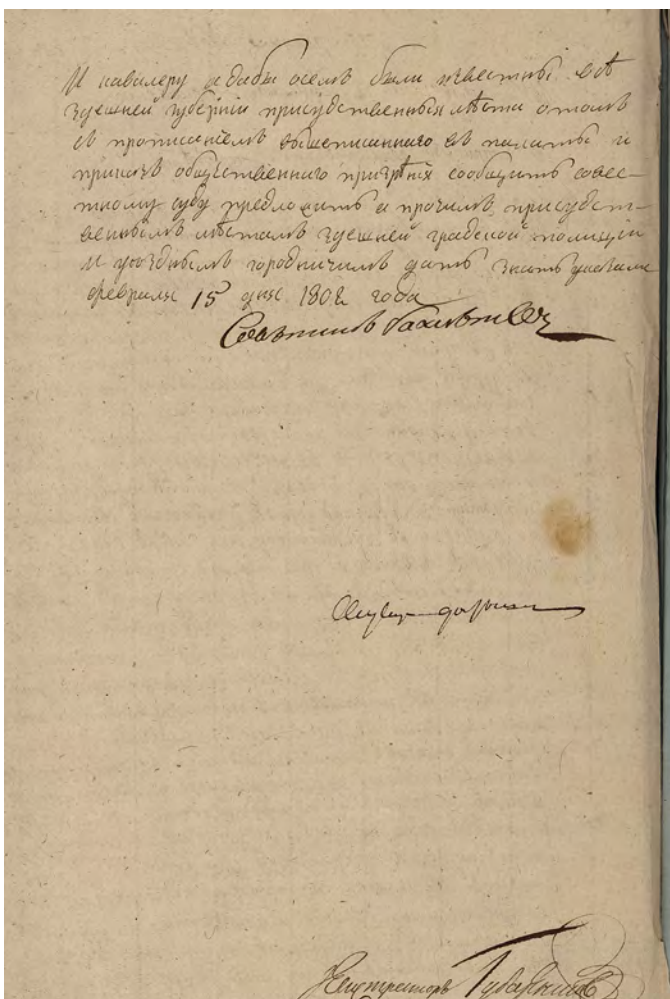 И кавалеру а дабы осемъ были извѣстны всѣ
здешней губерніи присудственныя мѣста о томъ
съ прописаніемъ вышеписанного въ палаты и
приказъ общественнаго призрѣнія сообщить совес-
тному суду предложить а прочимъ присудст-
веннымъ мѣстамъ здешней градской полиции
и уезднымъ городничимъ дать знать указами
февраля 15 дня 1802 года
Советникъ
Регистраторъ